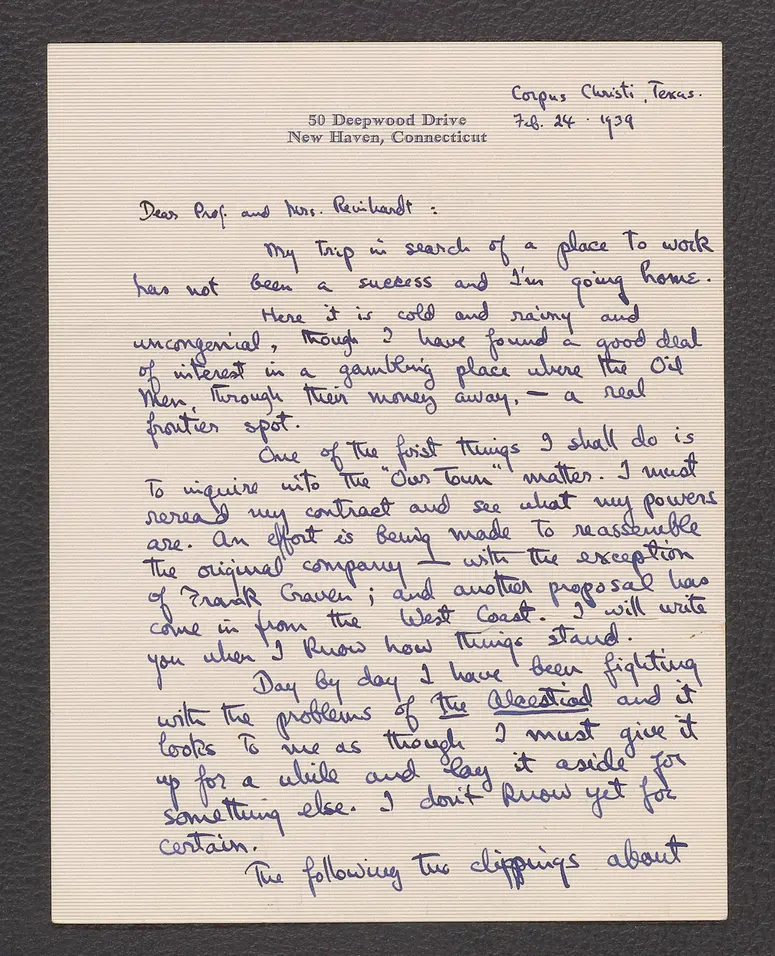 Corpus Christi, Texas.
50 Deepwood Drive
Feb. 24 · 1939
New Haven, Connecticut
Dear Prof. and Mrs. Reinhardt :
My trip in search of a place to work
has not been a success and I'm going home.
Here it is cold and rainy and
uncongenial, though I have found a good deal
of interest in a gambling place where the Oil
Men, through their money away, — a real
frontier spot.
One of the first things I shall do is
to inquire into the "Our Town" matter. I must
reread my contract and see what my powers
are. An effort is being made to reassemble
the original company — with the exception
of Frank Craven ; and another proposal has
come in from the West Coast. I will write
you when I know how things stand.
Day by day I have been fighting
with the problems of the Alcestiad and it
looks to me as though I must give it
up for a while and lay it aside for
something else. I don't know yet for
certain.
The following two clippings about